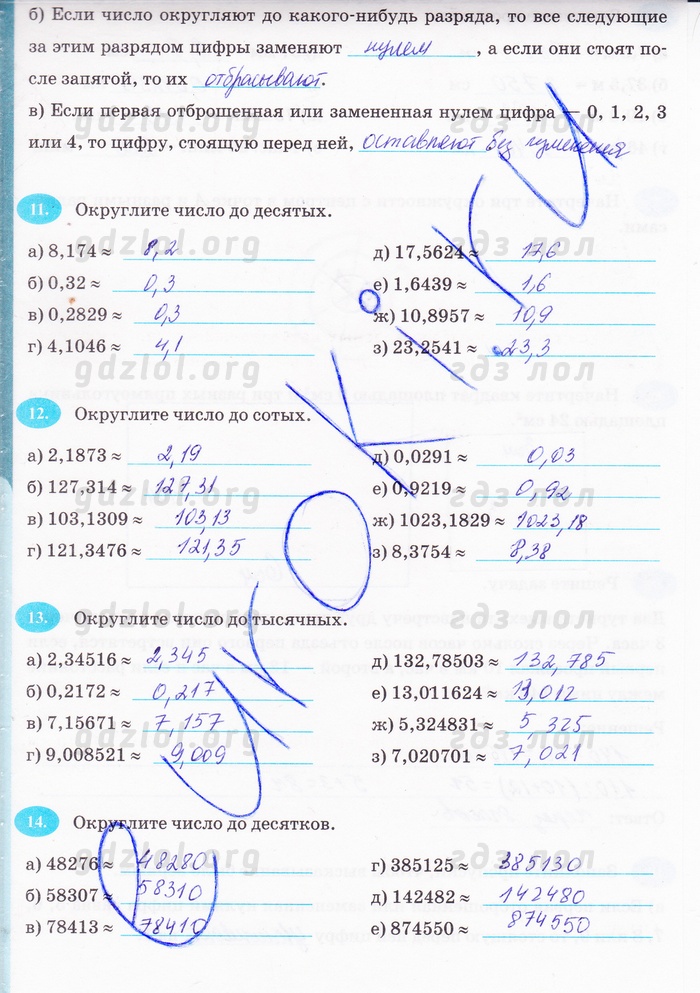 б) Если число округляют до какого-нибудь разряда, то все следующие
за этим разрядом цифры заменяют нулем, а если они стоят по-
сле запятой, то их отбрасывают.
в) Если первая отброшенная или замененная нулем цифра — 0, 1, 2, 3
gdzlol.org гдз лол
или 4, то цифру, стоящую перед ней, оставляют без изменения
11. Округлите число до десятых.
gdzlol.org гдз лол
а) 8,174 ≈ 8,2 д) 17,5624 ≈ 17,6
б) 0,32 ≈ 0,3 е) 1,6439 ≈ 1,6
в) 0,2829 ≈ 0,3 ж) 10,8957 ≈ 10,9
г) 4,1046 ≈ 4,1 з) 23,2541 ≈ 23,3
gdzlol.org гдз лол
12. Округлите число до сотых.
а) 2,1873 ≈ 2,19 д) 0,0291 ≈ 0,03
б) 127,314 ≈ 127,31 е) 0,9219 ≈ 0,92
gdzlol.org гдз лол
в) 103,1309 ≈ 103,13 ж) 1023,1829 ≈ 1023,18
г) 121,3476 ≈ 121,35 з) 8,3754 ≈ 8,38
gdzlol.org гдз лол
13. Округлите число до тысячных.
а) 2,34516 ≈ 2,345 д) 132,78503 ≈ 132,785
б) 0,2172 ≈ 0,217 е) 13,011624 ≈ 13,012
в) 7,15671 ≈ 7,157 ж) 5,324831 ≈ 5,325
gdzlol.org гдз лол
г) 9,008521 ≈ 9,009 з) 7,020701 ≈ 7,021
14. Округлите число до десятков.
а) 48276 ≈ 48280 г) 385125 ≈ 385130
gdzlol.org гдз лол
б) 58307 ≈ 58310 д) 142482 ≈ 142480
в) 78413 ≈ 78410 е) 874550 ≈ 874550